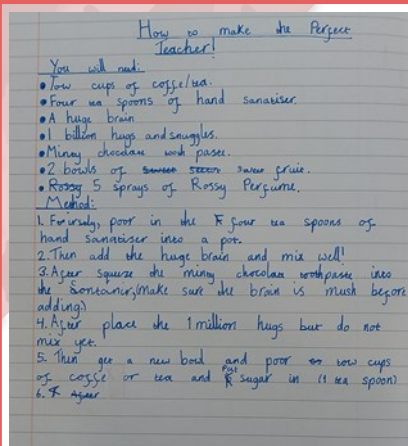 How to make the Perfect
Teacher!
You will need:
• Tow cups of coffe/tea.
• Four tea spoons of hand sanatiser.
• A huge brain
• 1 billion hugs and snuggles.
• Minty chocolate tooth paste.
• 2 bowls of sweet fruit.
• Rossy 5 sprays of Rossy Perfume.
Method:
1. Firstly, poor in the four tea spoons of
hand sanatiser into a pot.
2. Then add the huge brain and mix well!
3. After squeze the minty chocolate toothpaste into
the (make sure the brain is mush before
adding)
4. After place the 1 million hugs but do not
mix yet.
5. Then get a new bowl and poor tow cups
of coffe or tea and Put sugar in (1 tea spoon)
6. After